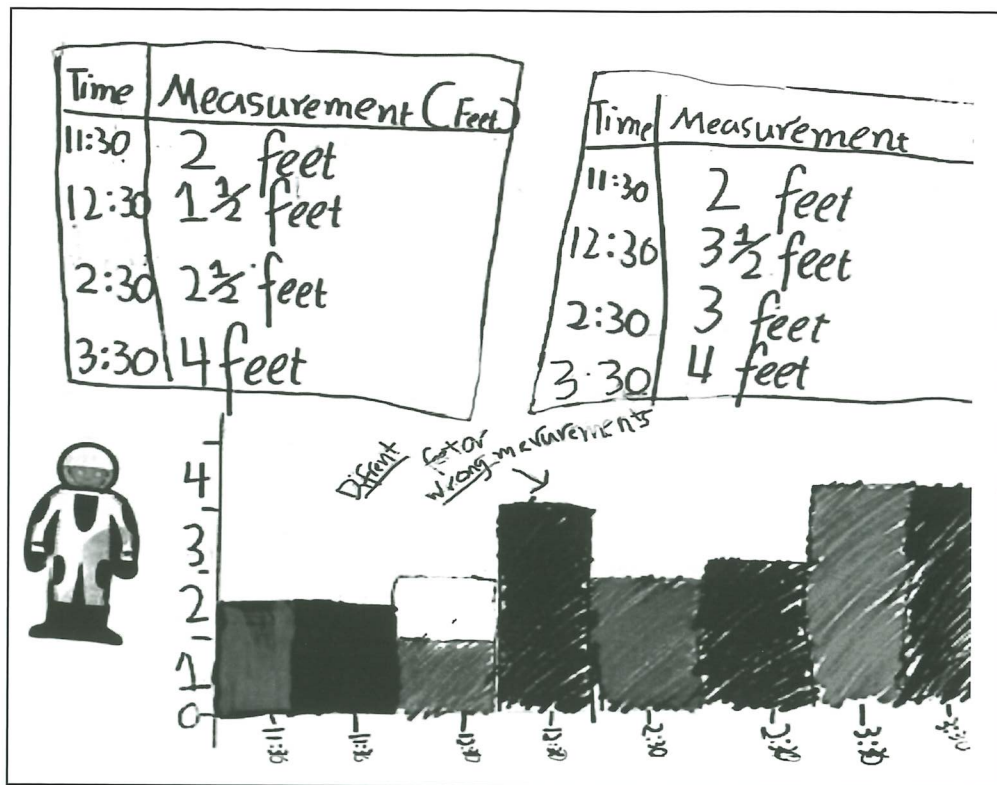 Time Measurement (Feet)
11:30 2 feet
12:30 1 1/2 feet
2:30 2 1/2 feet
3:30 4 feet
Time Measurement
11:30 2 feet
12:30 3 1/2 feet
2:30 3 feet
3:30 4 feet
Difrent
wrong
4
3
2
1
0
11:30
11:30
12:30
12:30
2:30
2:30
3:30
3:30